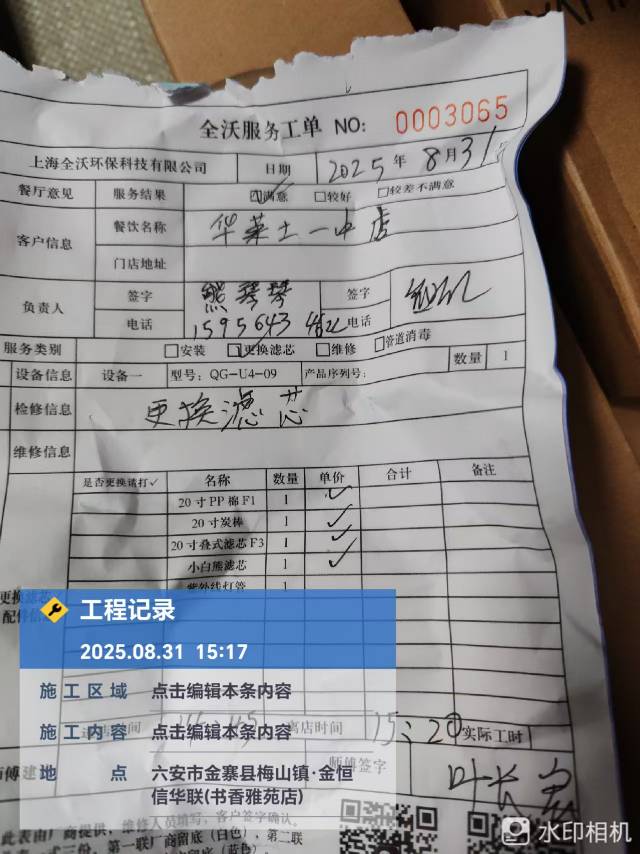 全沃服务工单 NO: 0003065
上海全沃环保科技有限公司 日期 2025年8月31
餐厅意见 服务结果 ☑满意 □较好 □较差不满意
客户信息 餐饮名称 华莱士一中店
门店地址
负责人 签字 熊琴琴 签字
电话 电话
服务类别 □安装 ☑更换滤芯 □维修 □管道消毒
设备信息 设备一 型号: QG-U4-09 产品序列号: 数量 1
检修信息 更换滤芯
维修信息
是否更换请打✓ 名称 数量 单价 合计 备注
20寸PP棉F1 1 ✓
20寸炭棒 1 ✓
20寸叠式滤芯F3 1 ✓
小白熊滤芯 1 ✓
紫外线灯管 1
更换滤芯
配件信
工程记录
2025.08.31 15:17
施工区域 点击编辑本条内容
施工内容 点击编辑本条内容
地点 六安市金寨县梅山镇·金恒信华联(书香雅苑店)
离店时间 15:20 实际工时
师傅签字
师傅建
此表由厂商提供，维修人员填写，客户签字确认。
一式三份，第一联厂商留底（白色），第二联
水印相机